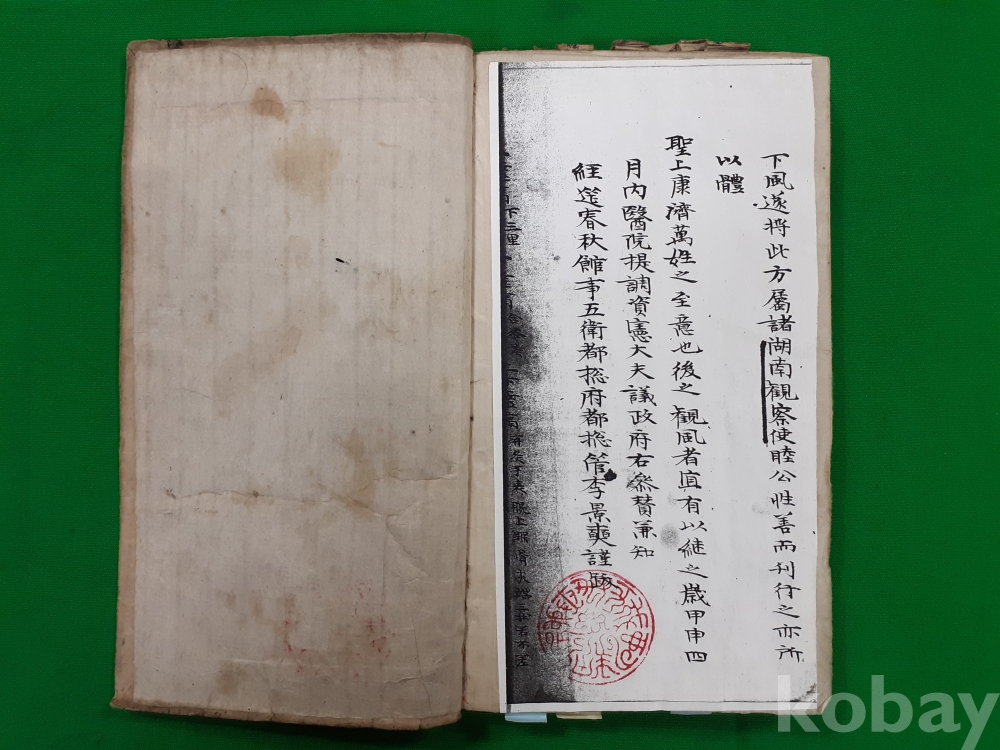 下風遂将此方屬諸湖南觀察使睦公性善而刊行之亦所
以體
聖上康濟萬姓之至意也後之觀風者宜有以継之歲甲申四
月內醫院提調資憲大夫議政府右叅賛兼知
経筵春秋館事五衛都摠府都摠管李景奭謹跋
kobay